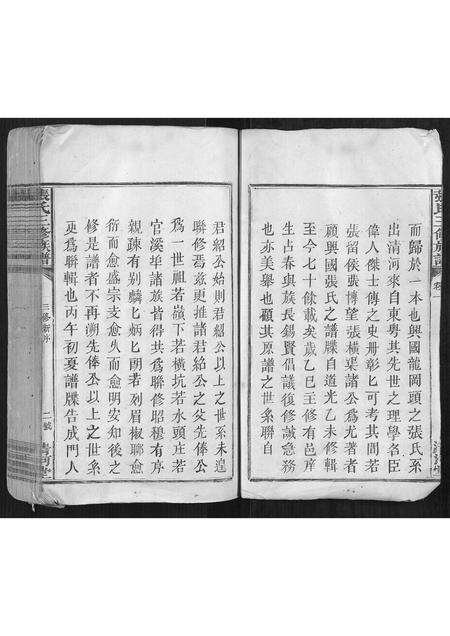 張氏三修族譜
卷一
而歸於一本也興國龍岡頭之張氏系
出清河來自東粵其先世之理學名臣
偉人傑士傳之史冊彰匕可考其間若
張留侯張博望張橫渠諸公爲尤著者
顧興國張氏之譜牒自道光乙未修輯
至今七十餘載矣歲乙巳王修有邑庠
生占春與族長錫賢倡議復修誠急務
也亦美舉也顧其原譜之世系聯自
君紹公始則君紹公以上之世系未遑
聯修焉茲更推諸君紹公之父先俸公
爲一世祖若嶺下若橫坑若水頭庄若
官溪坪諸族皆得共爲聯修昭穆有序
親疎有別麟匕炳匕朗若列眉椒聊愈
衍而愈盛宗支愈久而愈明安知後之
修是譜者不再溯先俸公以上之世系
更爲聯輯也丙午初夏譜牒告成門人
張氏三修族譜
三修新序
二號
清河堂